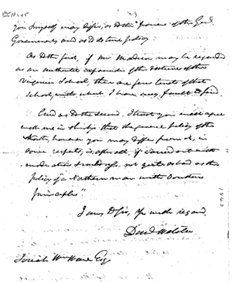 You & myself may differ, as to the "powers of the Genl.
Government, and as to its true policy.
As to the first, if Mr. Madison may be regarded
as an authentic expounder of the doctrines of the
Virginia School, there are few tenets of that
School, with which I have any fault to find.
And as to the second, I trust you will agree
with me in thinking that the general policy of the
North, however you may differ from it, in
some respects, is, after all, if carried out with
moderation & mildness, not quite as bad as the
policy of a Northern man with Southern
principles"
I am, Dr Sir, Yrs with regard,
Danl Webster
Esq